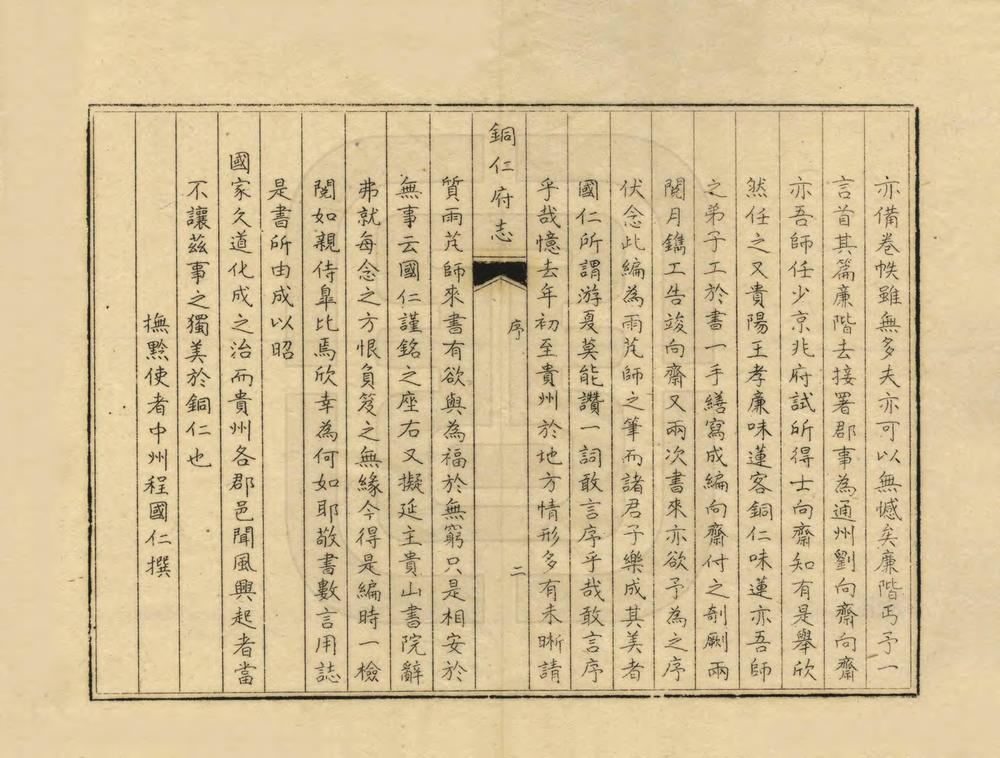 亦備卷帙雖無多夫亦可以無憾矣廉階丐予一
言首其篇廉階去接署郡事為通州劉向齋向齋
亦吾師任少京兆府試所得士向齋知有是舉欣
然任之又貴陽王孝廉味蓮客銅仁味蓮亦吾師
之弟子工於書一手繕寫成編向齋付之剞劂兩
閱月鐫工告竣向齋又兩次書來亦欲予為之序
伏念此編為雨芃師之筆而諸君子樂成其美者
國仁所謂游夏莫能讚一詞敢言序乎哉敢言序
乎哉憶去年初至貴州於地方情形多有未晰請
銅仁府志
序
二
質雨芃師來書有欲與為福於無窮只是相安於
無事云國仁謹銘之座右又擬延主貴山書院辭
弗就每念之方恨負笈之無緣今得是編時一檢
閱如親侍皐比焉欣幸為何如耶敬書數言用誌
是書所由成以昭
國家久道化成之治而貴州各郡邑聞風興起者當
不讓茲事之獨美於銅仁也
撫黔使者中州程國仁撰